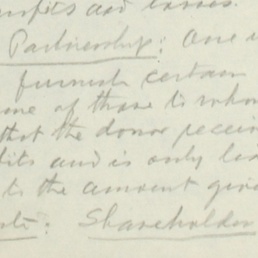 profits and losses.
Partnership: One
furnish certain
one of those to whom
that the donor
and is only
to the amount
: Shareholder